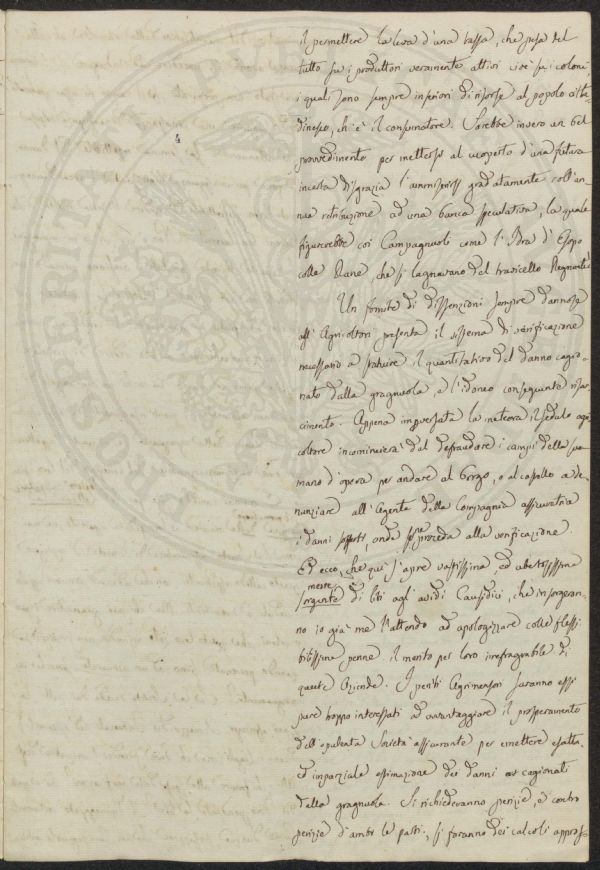 il permettere la leva d'una tassa, che pesa del
tutto su i produttori veramente attivi cioè su i coloni
i quali sono sempre inferiori di risorse al popolo citta-
dinesco, ch'è il consumatore. Sarebbe invero un bel
provvedimento per mettersi al coperto d'una futura
incerta disgrazia l'ammiserirsi gradatamente coll'an-
nua retribuzione ad una banca speculativa, la quale
figurerebbe coi Campagnuoli come l'Idra d'Esopo
colle Rane, che si lagnavano del travicello Regnante.
Un fomite di dissenzioni sempre dannose
agl'Agricoltori presenta il sistema di verificazione
necessario a statuire il quantitativo del danno cagio-
nato dalla gragnuola, e l'idoneo conseguente risar-
cimento. Appena imperversata la meteora il sedulo agri
coltore incomincierà dal defraudare i campi della sua
mano d'opera per andare al borgo, o al castello a de-
nunziare all'Agente della Compagnia assicuratrice
i danni sofferti, onde si proceda alla verificazione.
Ed ecco, che qui s'apre vastissima, ed ubertosissima
messe
sorgente di liti agl'avidi Causidici, che insorgeran-
no io già me l'attendo ad apologizzare colle flessi
bilissime penne il merito per loro irrefragabile di
queste Aziende. I periti Agrimensori saranno essi
pure troppo interessati ad avvantaggiare il prosperamento
dell'opulenta Società assicurante per emettere esatta,
ed imparziale estimazione dei danni cagionati
dalla gragnuola. Si richiederanno perizie, e contro
perizie d'ambe le parti, si faranno dei calcoli appros-
4